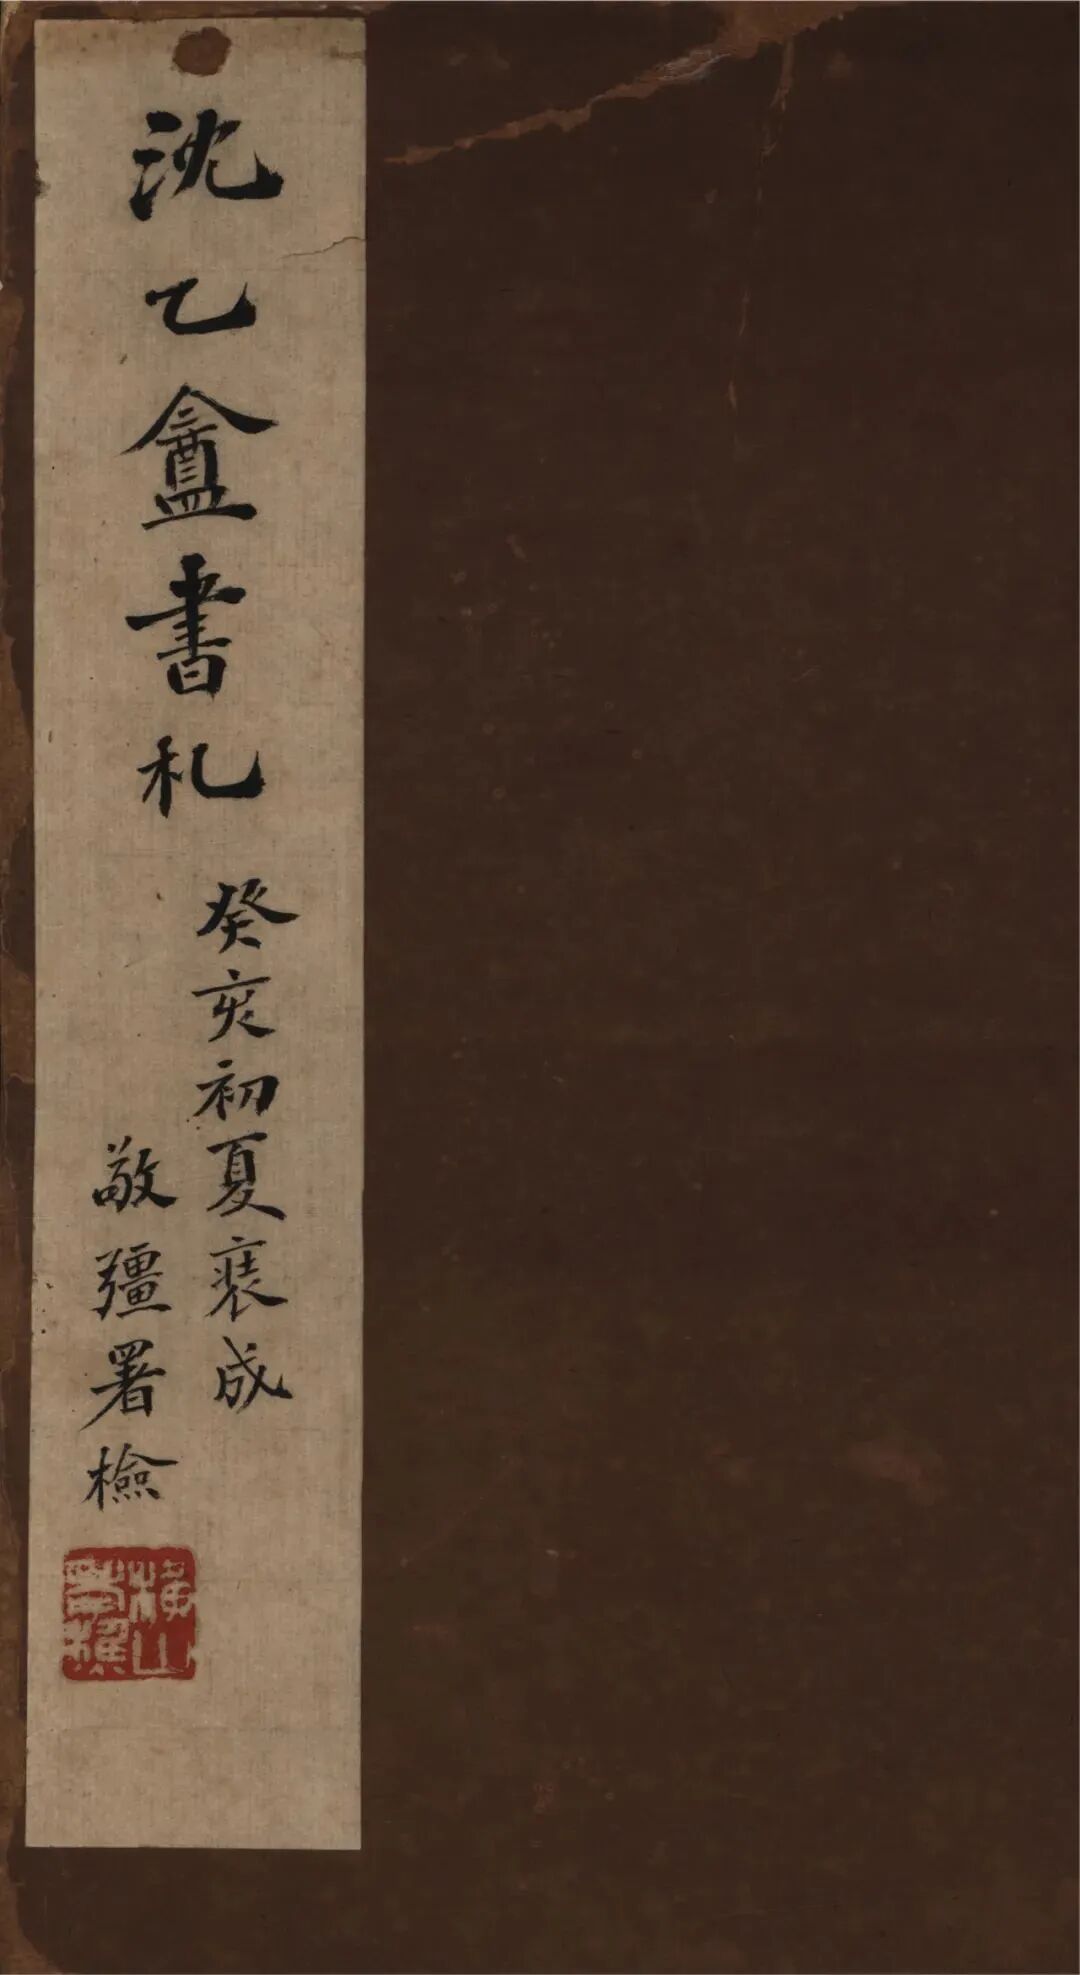 沈乙盦書札
癸亥初夏裴成
敬彊署檢